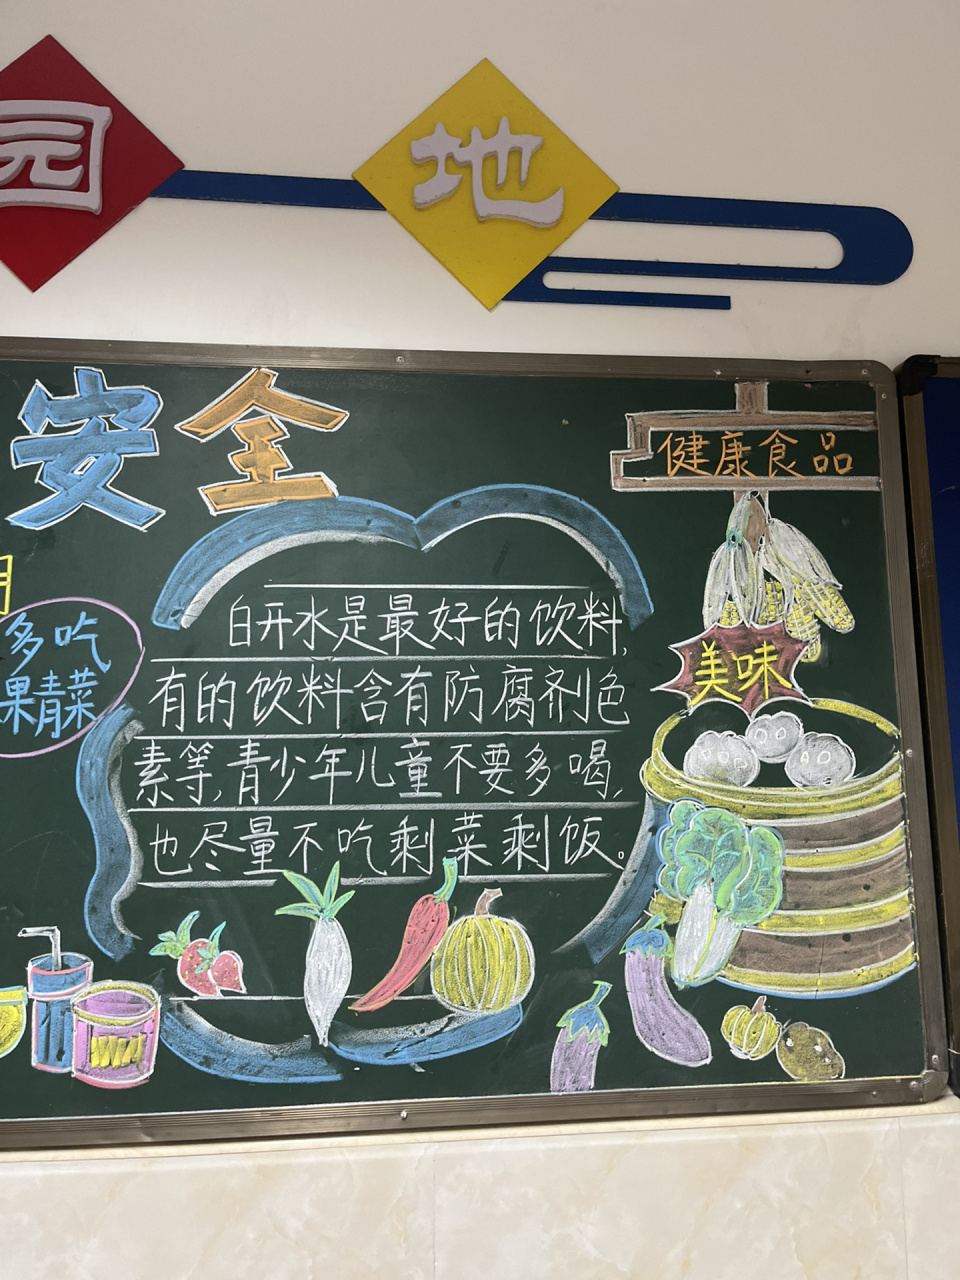 园 地
安全
健康食品
多吃
果青菜
白开水是最好的饮料,
有的饮料含有防腐剂色
素等,青少年儿童不要多喝,
也尽量不吃剩菜剩饭。
美味